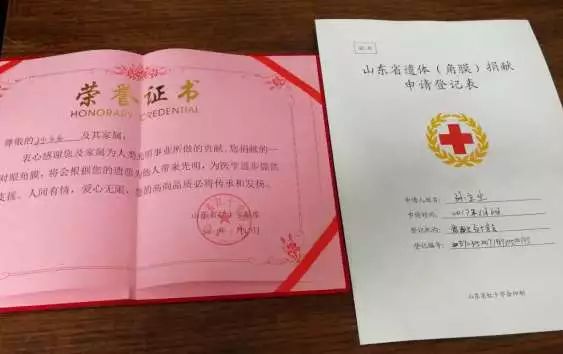 荣誉证书
HONORARY CREDENTIAL
尊敬的 及其家属:
衷心感谢您及家属为人类光明事业所做的贡献,您捐献的一
对眼角膜,将会根据您的遗愿为他人带来光明,为医学进步提供
支援。人间有情,爱心无限,您的高尚品质必将传承和发扬。
山东省红十字会
山东省遗体(角膜)捐献
申请登记表
申请人姓名:
申请时间:2017年
登记机构:
登记编号:
山东省红十字会印制